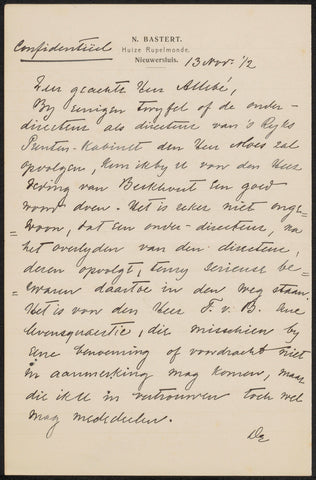 N. BASTERT.
Huize Rupelmonde.
Nieuwersluis. 13 Nov. '12
Confidentieel
Zeer geachte Heer Allebé,
By eenigen twyfel of de onder-
directeur als directeur van 's Ryks
Prenten-Kabinet den Heer Moes zal
opvolgen, kom ik by U voor den Heer
Teding van Berkhout een goed
woord doen. Het is zeker niet onge-
woon, dat een onder-directeur, na
het overlyden van den directeur,
dezen opvolgt, tenzy serieuse be-
zwaren daartoe in den weg staan.
Het is voor den Heer T. v. B. eene
levensquaestie, die misschien by
eene benoeming of voordracht niet
in aanmerking mag komen, maar
die ik U in vertrouwen toch wel
mag mededeelen.
De